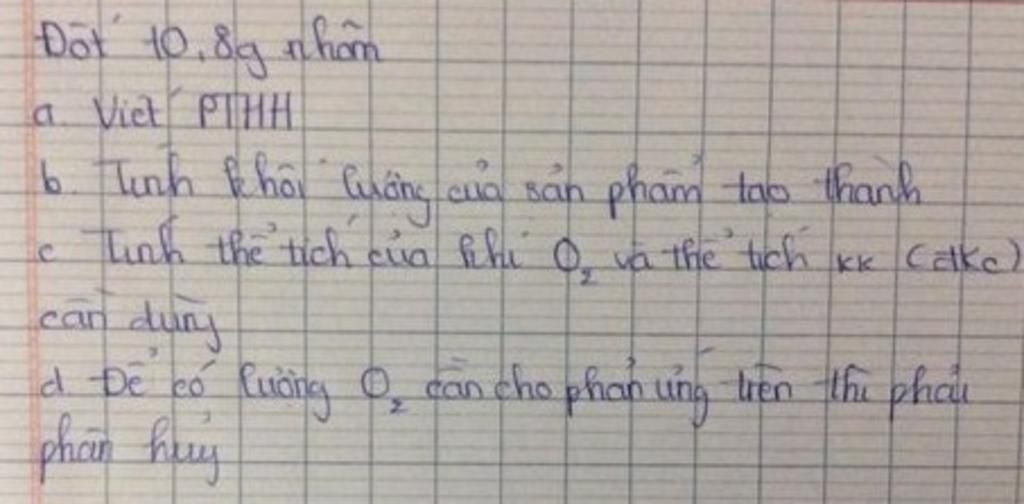 Đốt 10,8g nhôm
a. Viết PTHH
b. Tính khối lượng của sản phẩm tạo thành
c Tính thể tích của khí O₂ và thể tích kk (đkc)
cần dùng
d Để có lượng O₂ cần cho phản ứng trên thì phải
phân hủy